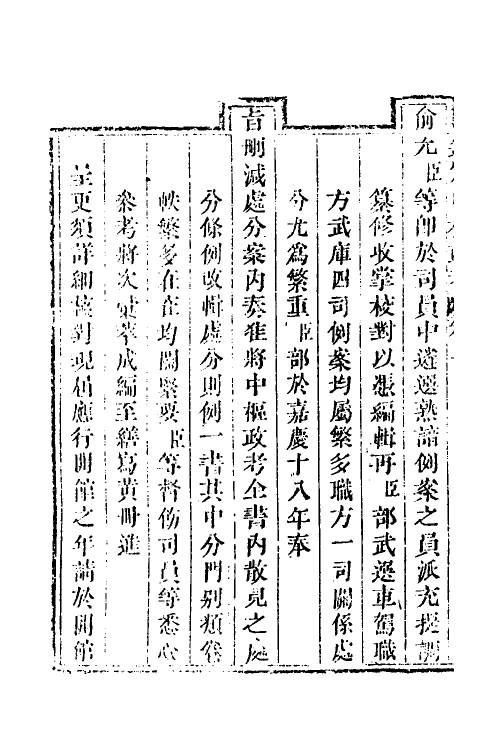 俞允臣等卽於司員中遴選熟諳例案之員派充提調
纂修收掌校對以憑編輯再臣部武選車駕職
方武庫四司例案均屬繁多職方一司關係處
分尤爲繁重臣部於嘉慶十八年奉
旨刪減處分案內奏准將中樞政考全書內散見之處
分條例改輯處分則例一書其中分門別類卷
帙繁多在在均關緊要臣等督飭司員等悉心
參考將次彙萃成編至繕寫黃冊進
呈更須詳細核對現値應行開館之年請於開館